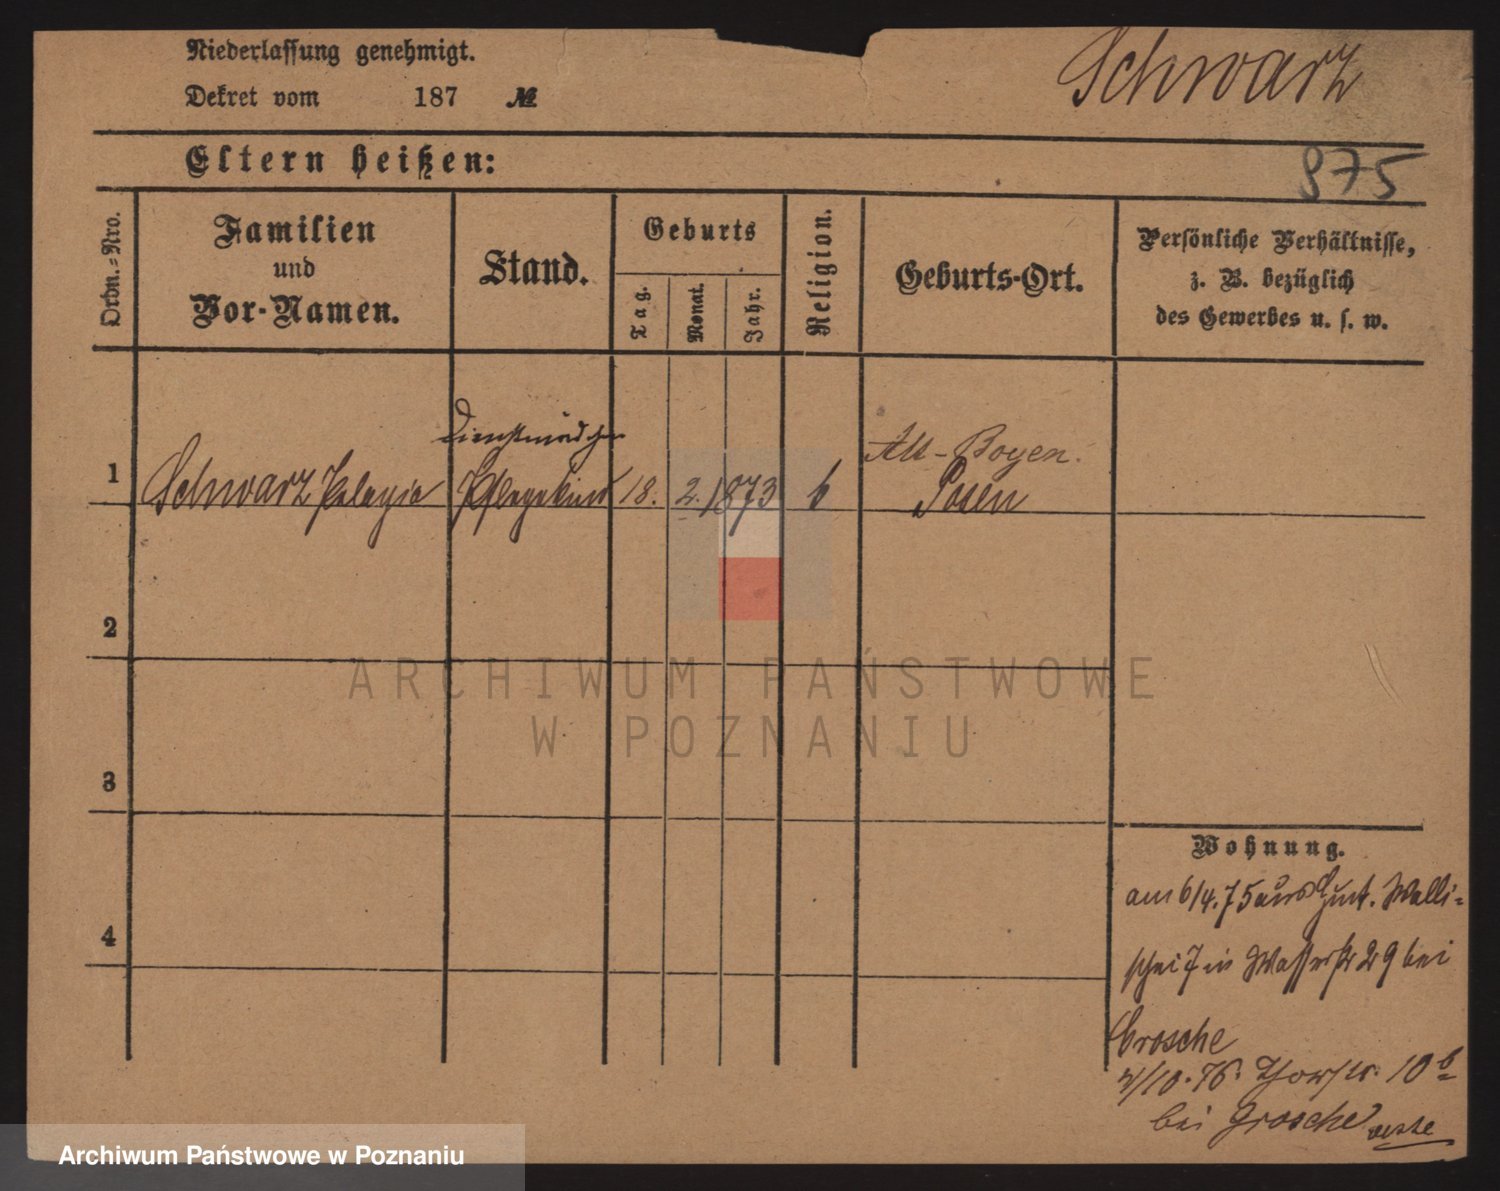 Niederlassung genehmigt.
Schwarz
Dekret vom 187 №
Eltern heißen:
975
Ordn.=Nro.
Familien
und
Vor-Namen.
Stand.
Geburts
Tag.
Monat.
Jahr.
Religion.
Geburts-Ort.
Persönliche Verhältnisse,
z. B. bezüglich
des Gewerbes u. s. w.
Dienstmädchen
Alt-Boyen.
1 Schwarz Pelagia Pflegekind 18. 2. 1873 Posen
2
3
4
ARCHIWUM PAŃSTWOWE
W POZNANIU
Wohnung.
am 6/4.75 aus Hint. Walli-
schei 7 in Wasserstr 29 bei
Grosche
/10.76. 10b
bei Grosche
Archiwum Państwowe w Poznaniu